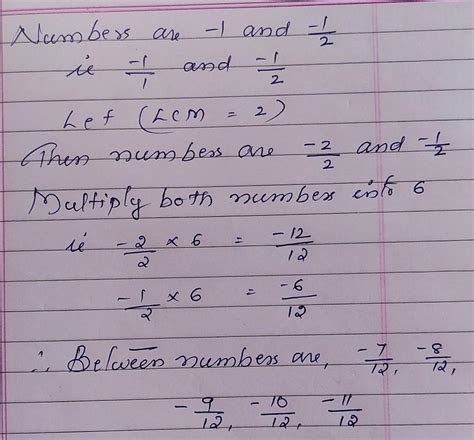 Numbers are -1 and -1/2
ie -1/1 and -1/2
Let (LCM = 2)
Then numbers are -2/2 and -1/2
Multiply both numbers into 6
ie -2/2 × 6 = -12/12
-1/2 × 6 = -6/12
∴ Between numbers are, -7/12, -8/12,
-9/12, -10/12, -11/12